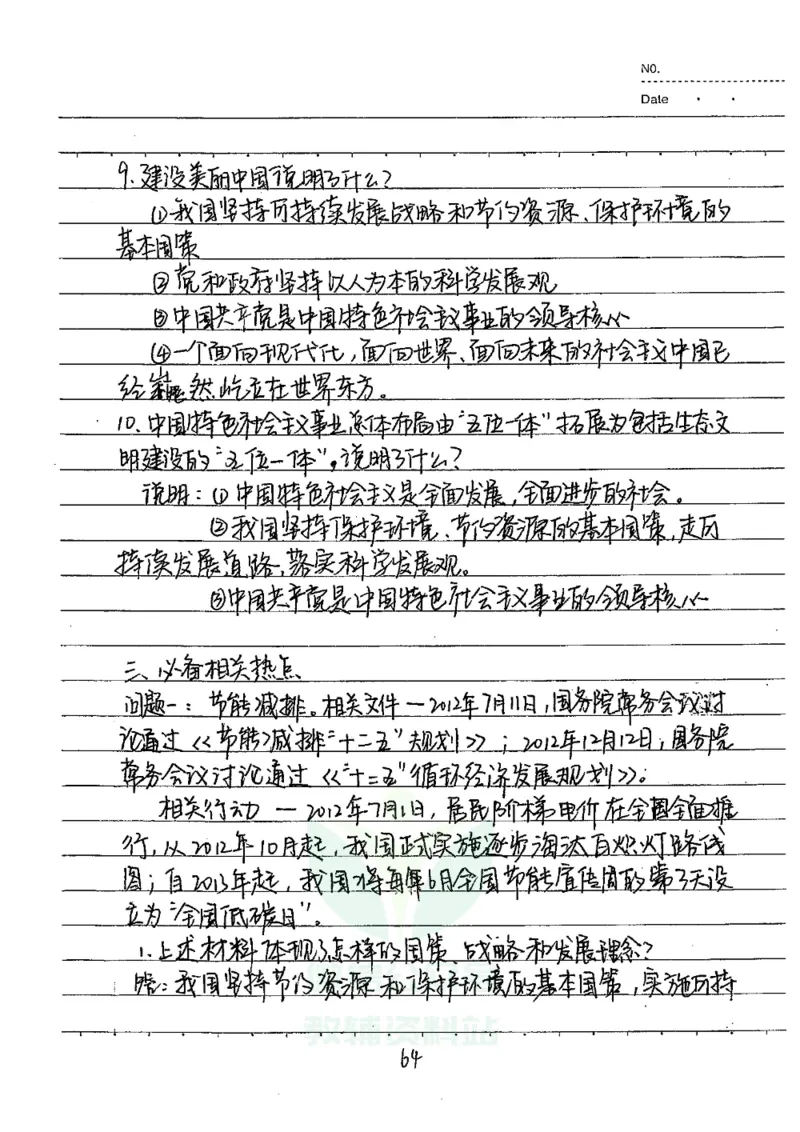 NO.
Date
9.建设美丽中国说明了什么?
①我国坚持可持续发展战略和节约资源、保护环境的
基本国策
②党和政府坚持以人为本的科学发展观
③中国共产党是中国特色社会主义事业的领导核心
④一个面向现代化,面向世界、面向未来的社会主义中国已
经巍然屹立在世界东方。
10.中国特色社会主义事业总体布局由“五位一体”拓展为包括生态文
明建设的“五位一体”,说明了什么?
说明:①中国特色社会主义是全面发展,全面进步的社会。
②我国坚持保护环境、节约资源的基本国策,走可
持续发展道路,落实科学发展观。
③中国共产党是中国特色社会主义事业的领导核心
三、必备相关热点
问题一:节能减排。相关文件—2012年7月11日,国务院常务会议讨
论通过《节能减排“十二五”规划》;2012年12月12日,国务院
常务会议讨论通过《“十二五”循环经济发展规划》。
相关行动—2012年7月1日,居民阶梯电价在全国全面推
行,从2012年10月起,我国正式实施逐步淘汰白炽灯路线
图;自2013年起,我国将每年6月全国节能宣传周的第3天设
立为“全国低碳日”。
1.上述材料体现了怎样的国策、战略和发展理念?
答:我国坚持节约资源和保护环境的基本国策,实施可持
教辅资料站
64